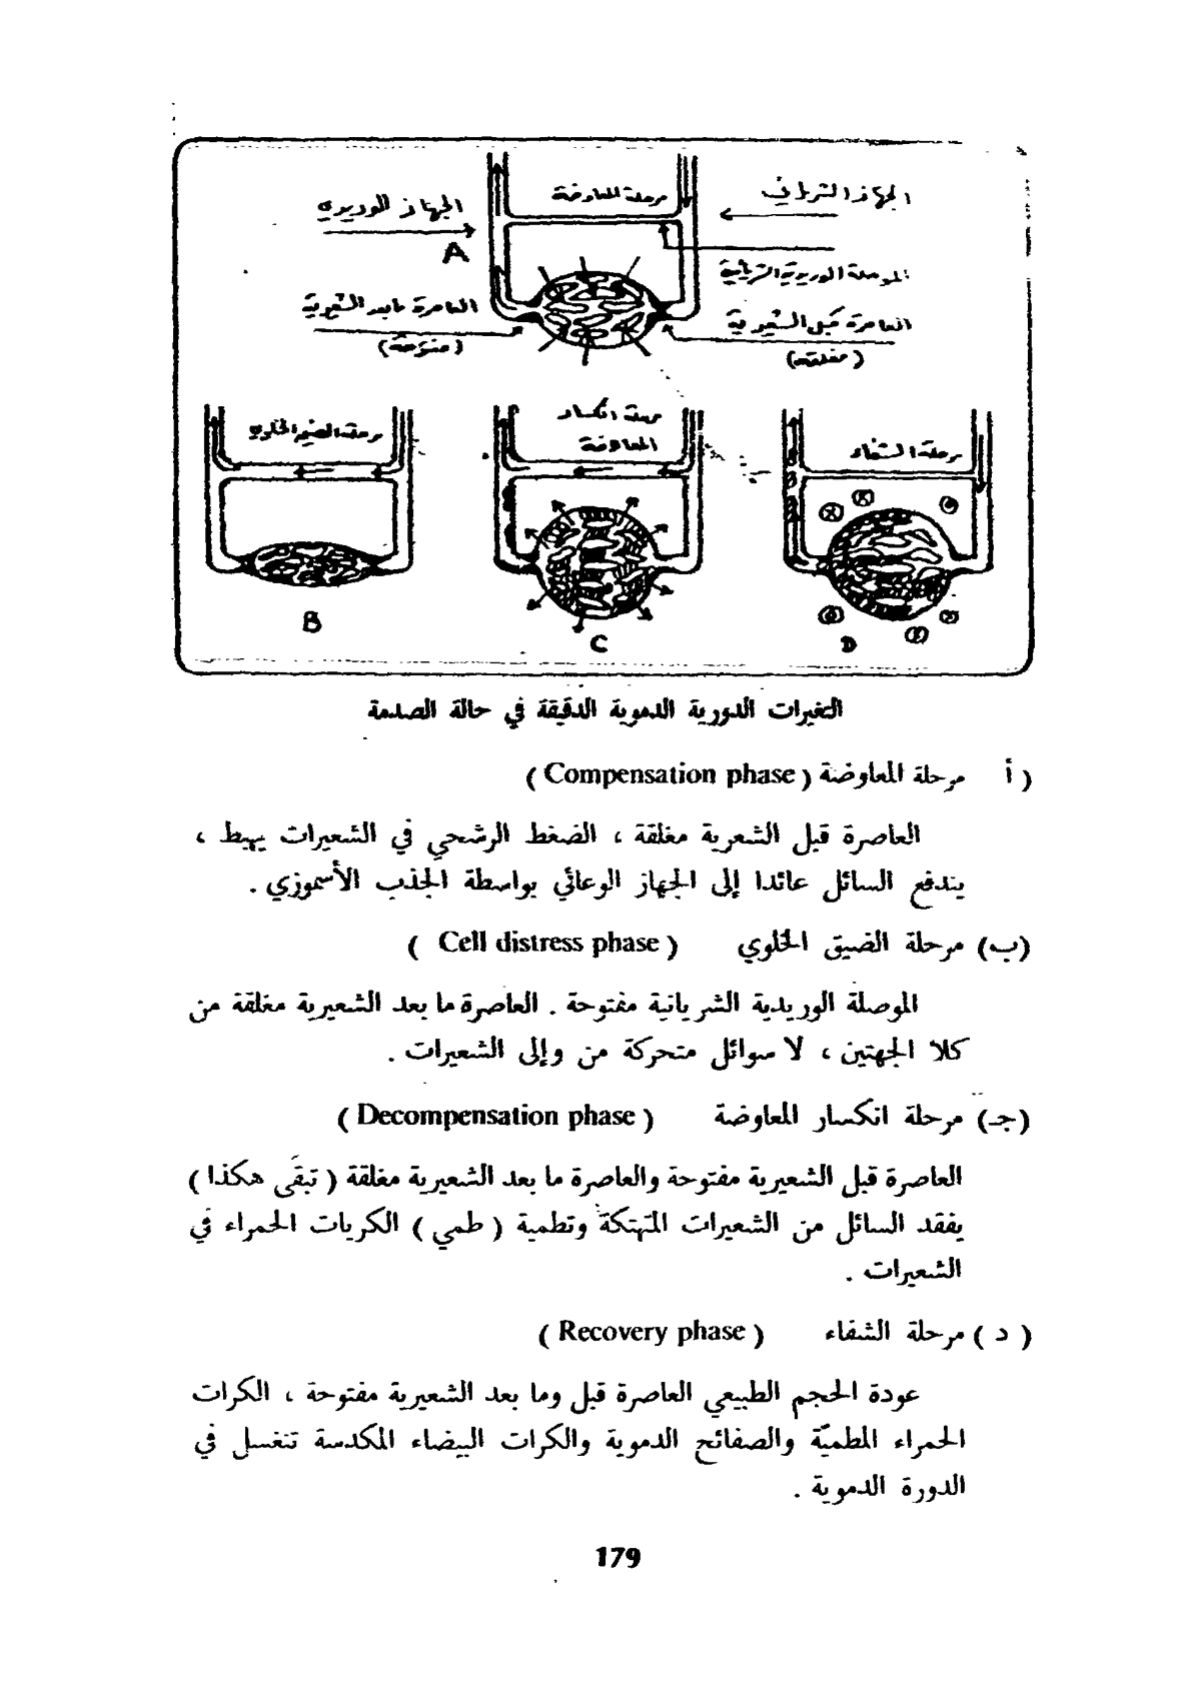 مرحلة المعاوضة
الجهاز الشرياني
الجهاز الوريدي
A
الموصلة الوريدية الشريانية
العاصرة مابعد الشعيرية
(مفتوحة)
العاصرة قبل الشعيرية
(مغلقة)
مرحلة الضيق الخلوي
مرحلة انكسار
المعاوضة
مرحلة الشفاء
B
C
D
التغيرات الدورية الدموية الدقيقة في حالة الصدمة
( أ مرحلة المعاوضة ( Compensation phase )
العاصرة قبل الشعرية مغلقة ، الضغط الرشحي في الشعيرات يهبط ،
يندفع السائل عائدا إلى الجهاز الوعائي بواسطة الجذب الأسموزي .
(ب) مرحلة الضيق الخلوي ( Cell distress phase )
الموصلة الوريدية الشريانية مفتوحة . العاصرة ما بعد الشعيرية مغلقة من
كلا الجهتين ، لا سوائل متحركة من وإلى الشعيرات .
(جـ) مرحلة انكسار المعاوضة ( Decompensation phase )
العاصرة قبل الشعيرية مفتوحة والعاصرة ما بعد الشعيرية مغلقة ( تبقى هكذا )
يفقد السائل من الشعيرات المتهتكة وتطمية ( طمي ) الكريات الحمراء في
الشعيرات .
( د ) مرحلة الشفاء ( Recovery phase )
عودة الحجم الطبيعي العاصرة قبل وما بعد الشعيرية مفتوحة ، الكرات
الحمراء المطميّة والصفائح الدموية والكرات البيضاء المكدسة تنغسل في
الدورة الدموية .
179